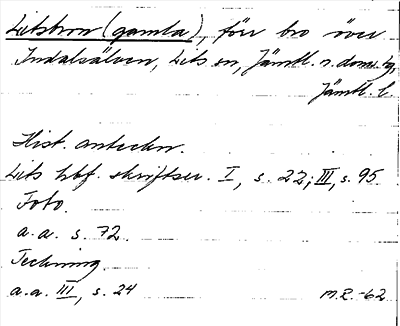 Litsbron (gamla), förr bro över
Indalsälven, Lits sn, Jämtl. n. doms.tg,
Jämtl. l.
Hist. anteckn.
Lits hbf. skriftser. I, s. 22; III, s. 95
Foto.
a.a. s. 72.
Teckning.
a.a. III, s. 24
M.R. -62